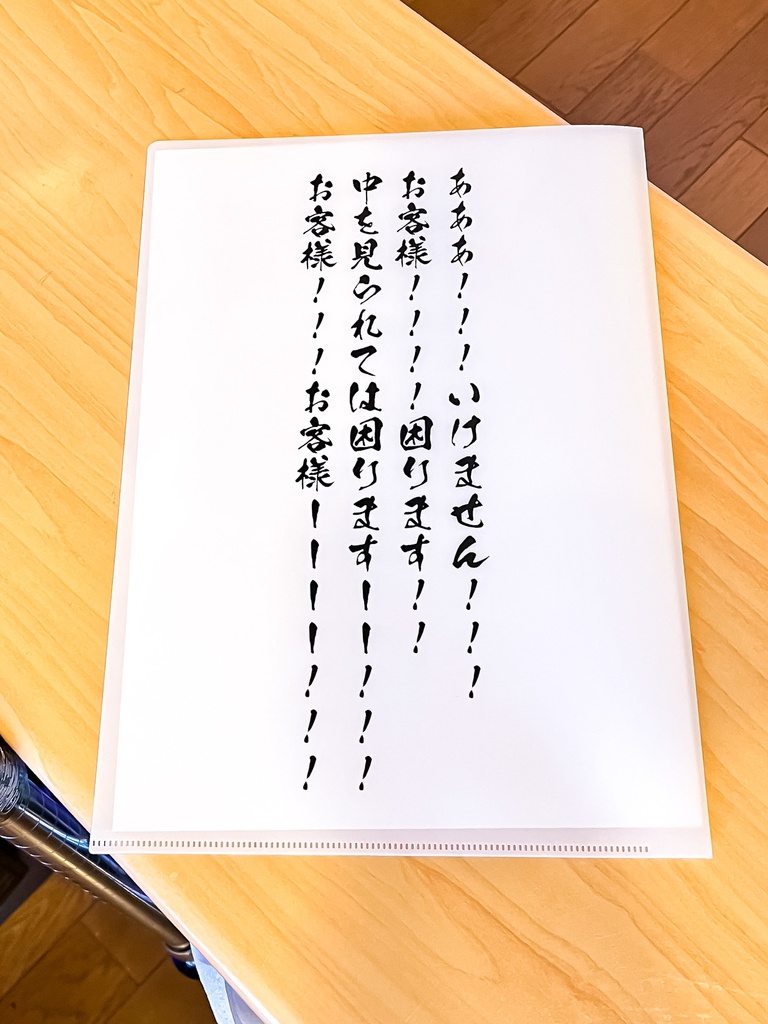 あああ！！！いけません！！！
お客様！！！！困ります！！
中を見られては困りますーー！！！
お客様！！！お客様ーーーー！！！